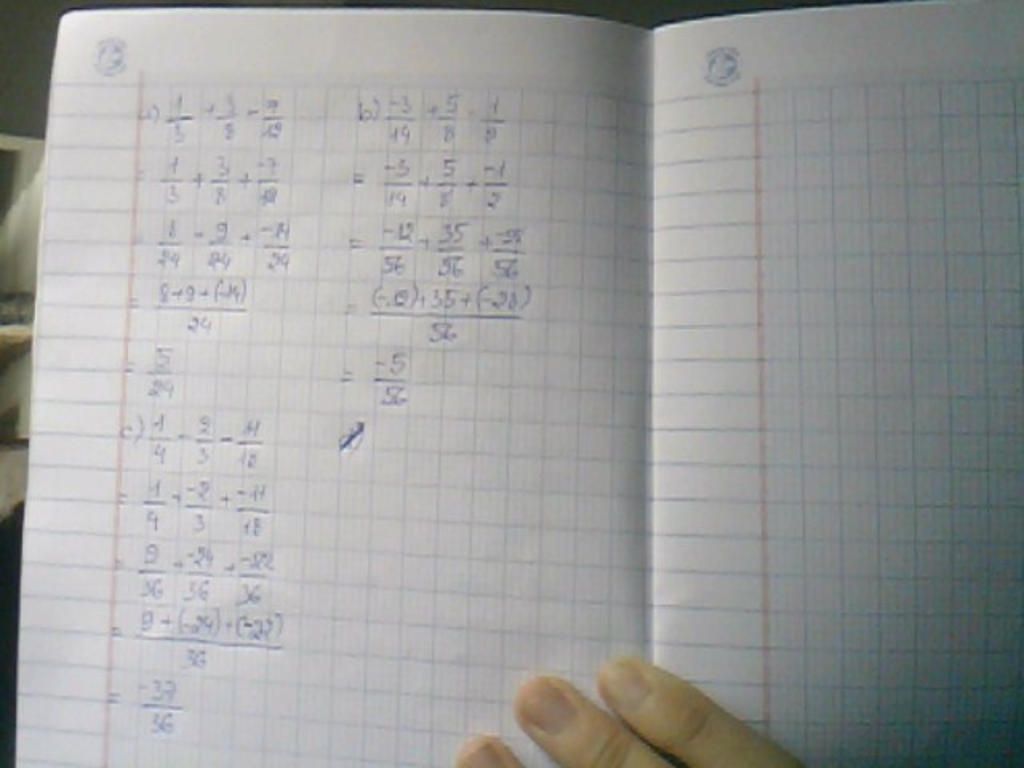 a) 1/3 + 3/8 - 7/12
= 1/3 + 3/8 + -7/12
= 8/24 + 9/24 + -14/24
= 8+9+(-14)/24
= /24
b) -3/14 + 5/8 - 1/2
= -3/14 + 5/8 + -1/2
= -12/56 + 35/56 + -28/56
= (-12)+35+(-28)/56
= -5/56
c) 1/4 - 2/3 - 11/18
= 1/4 + -2/3 + -11/18
= 9/36 + -24/36 + -22/36
= 9+(-24)+(-22)/36
= -37/36